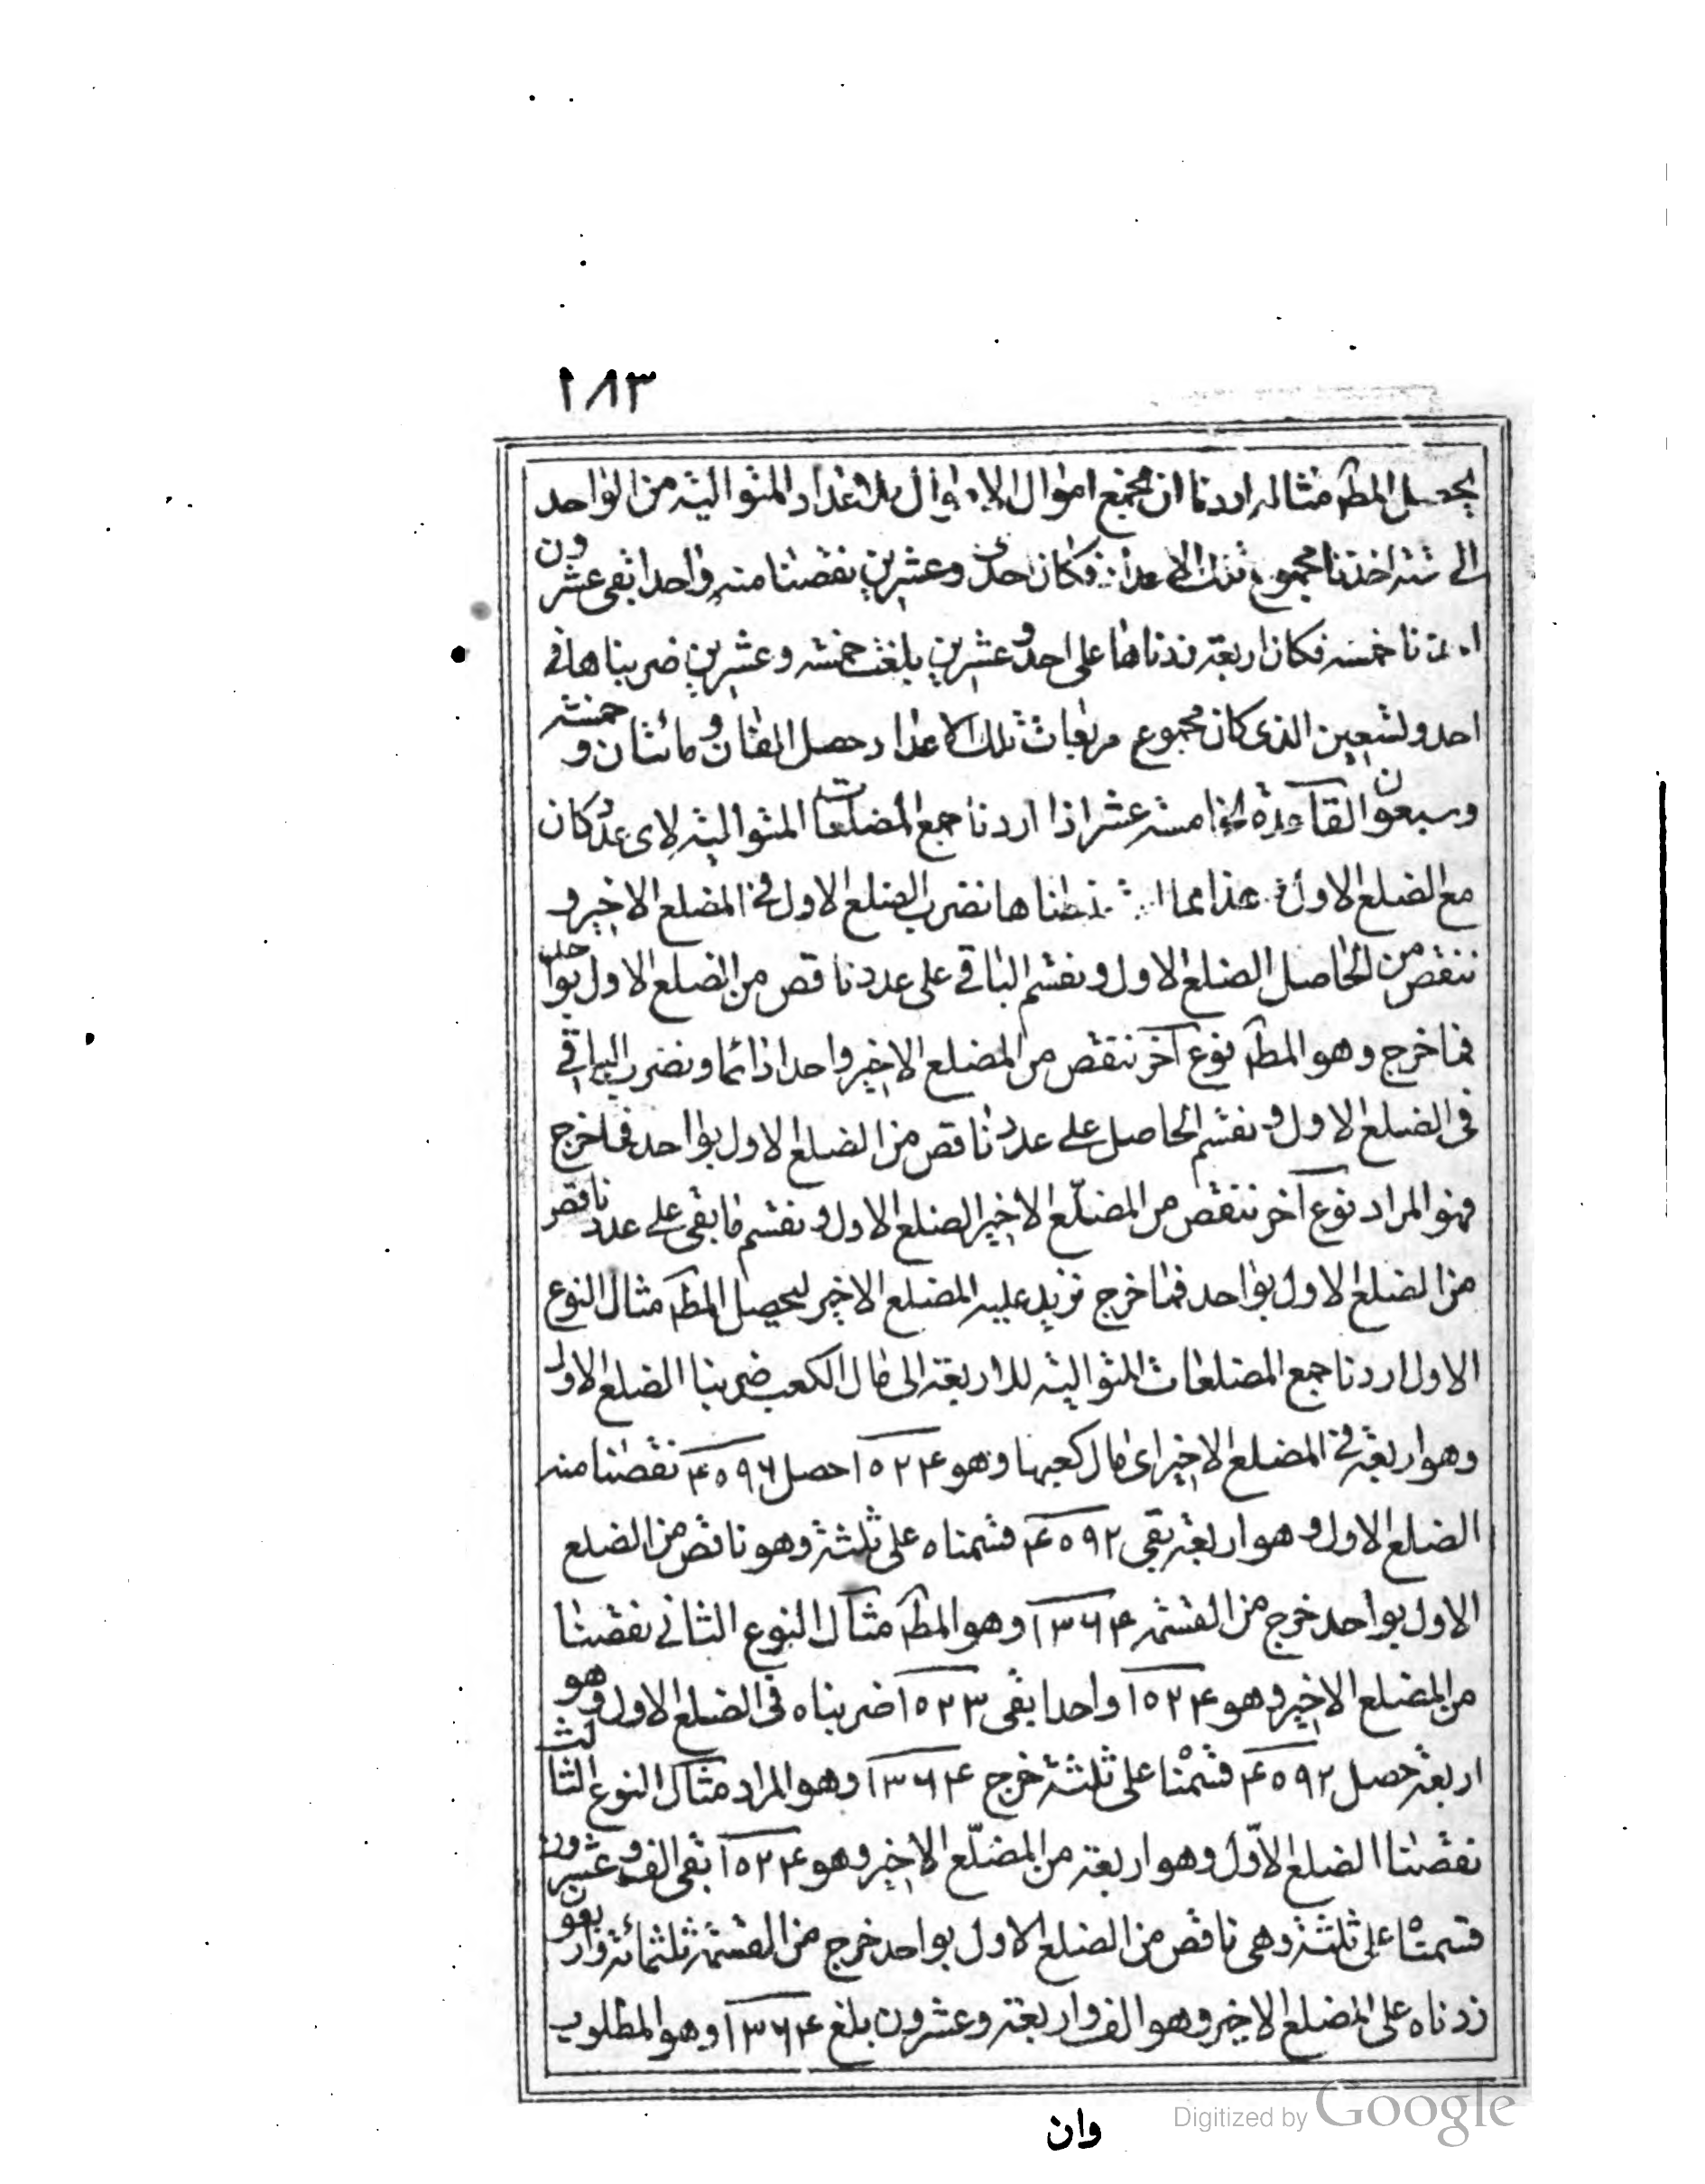 ١٨٣
يحصل المطـ مثاله اردنا ان نجمع اموال الاموال للاعداد المتوالية من الواحد
الى ستة اخذنا مجموع تلك الاعداد فكان احدى وعشرين نقصنا منه واحدا بقى عشرون
اخذنا خمسه فكان اربعة زدناها على احد وعشرين بلغت خمسة وعشرين ضربناها فى
احد وتسعين الذى كان مجموع مربعات تلك الاعداد حصل الفان و مائتان و خمسة
وسبعون القاعدة الخامسة عشر اذا اردنا جمع المضلعات المتوالية لاى عدد كان
مع الضلع الاول هذا مما استنبطناها نضرب الضلع الاول فى المضلع الاخير و
ننقص من الحاصل الضلع الاول ونقسم الباقى على عدد ناقص من الضلع الاول بواحد
فما خرج وهو المطـ نوع آخر ننقص من المضلع الاخير واحدا دائما ونضرب الباقى
فى الضلع الاول ونقسم الحاصل على عدد ناقص من الضلع الاول بواحد فما خرج
فهو المراد نوع آخر ننقص من المضلّع الاخير الضلع الاول ونقسم ما بقى على عدد ناقص
من الضلع الاول بواحد فما خرج نزيد عليه المضلع الاخير ليحصل المطـ مثال النوع
الاول اردنا جمع المضلعات المتوالية للاربعة الى مال الكعب ضربنا الضلع الاول
وهو اربعة فى المضلع الاخير اى مال كعبها وهو ١٥٢۴ حصل ۴٥٩۶ نقصنا منه
الضلع الاول وهو اربعة بقى ۴٥٩٢ قسمناه على ثلثة وهو ناقص من الضلع
الاول بواحد خرج من القسمة ١٣۶۴ وهو المطـ مثال النوع الثانى نقصنا
من المضلع الاخير وهو ١٥٢۴ واحدا بقى ١٥٢٣ ضربناه فى الضلع الاول وهو
اربعة حصل ۴٥٩٢ قسمنا على ثلثة خرج ١٣۶۴ وهو المراد مثال النوع الثالث
نقصنا الضلع الاوّل وهو اربعة من المضلّع الاخير وهو ١٥٢۴ بقى الف وعشرون
قسمنا على ثلثة وهى ناقص من الضلع الاول بواحد خرج من القسمة ثلثمائة واربعون
زدناه على المضلع الاخير وهو الف واربعة وعشرون بلغ ١٣۶۴ وهو المطلوب
وان
Digitized by Google